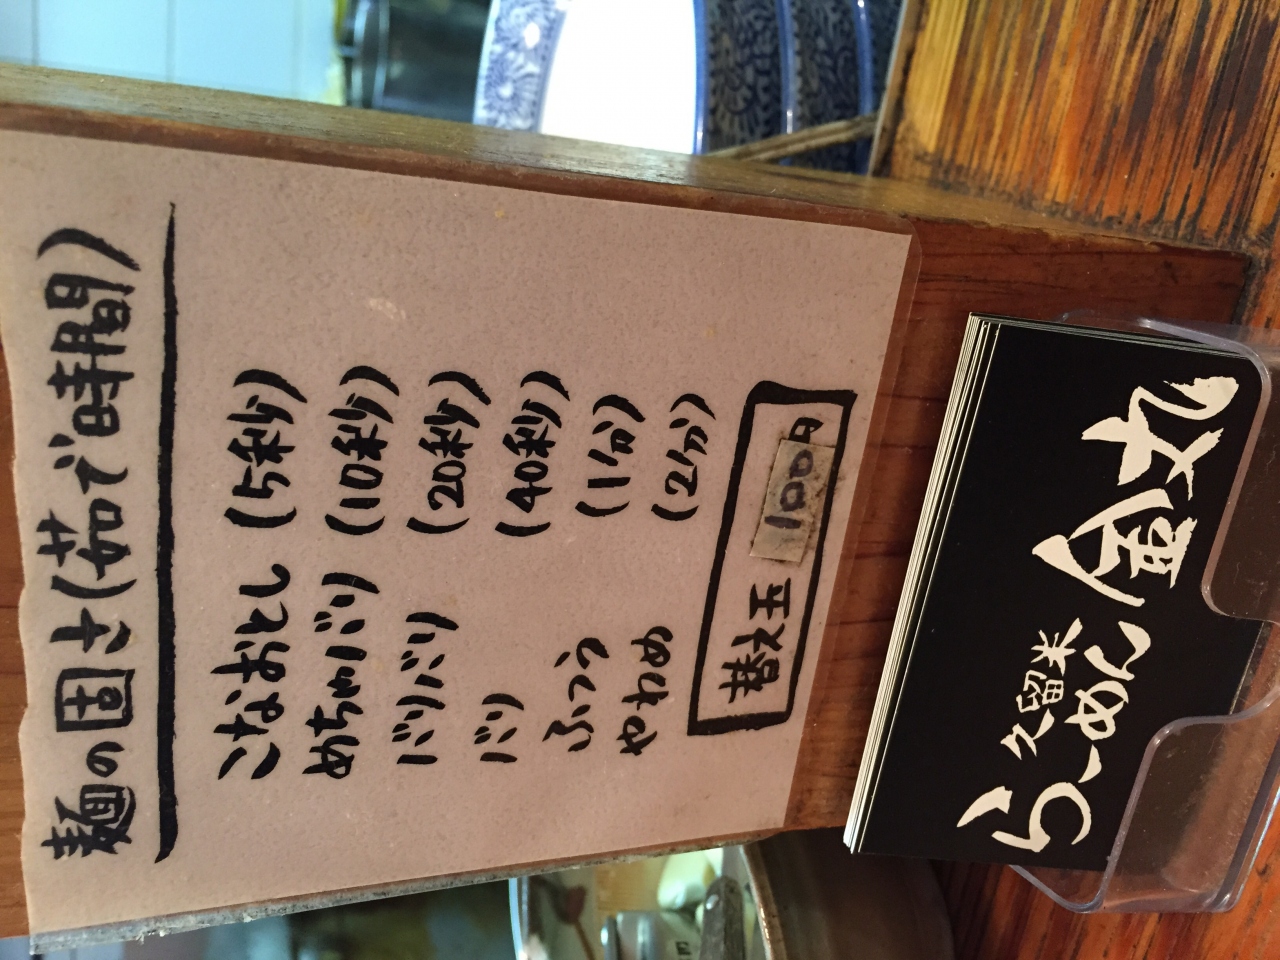 麺の固さ(茹で時間)
こなおとし (5秒)
めちゃバリ (10秒)
バリバリ (20秒)
バリ (40秒)
ふつう (1分)
やわめ (2分)
替え玉 100円
久留米
らーめん 金丸